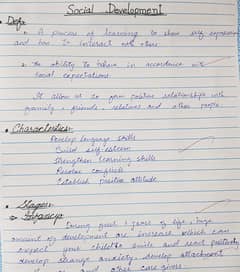 Social Development
Defn
1. A process of learning to show self expression
and how to interact with others
2. The ability to behave in accordance with
social expectations.
It allow us to form positive relationships with
family, friends, relatives and other people.
Characteristics:
Develop language skills
Build self-esteem
Strengthen learning skills
Resolve conflicts
Establish positive attitude
Stages:
Infancy:
During first 2 years of life, huge
amount of development are increase which can
expect your child to smile and react positively
develop stranger anxiety, develop attachment
and other care givers